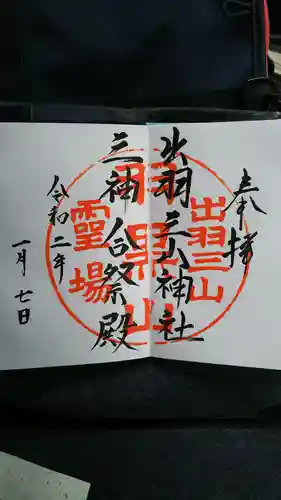 奉拝
出羽三山神社
三神合祭殿
令和二年
一月七日
出羽三山
羽黒山
霊場